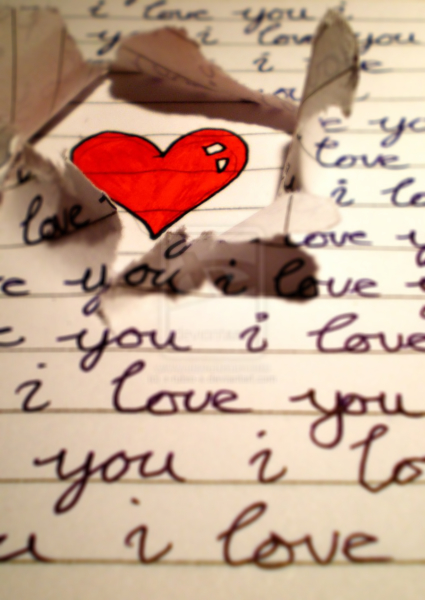 i love you i
y i love you
i e
e yo
love
love i lo
i love y
e you i love y
e you i love
i love you
you i lo
u i love